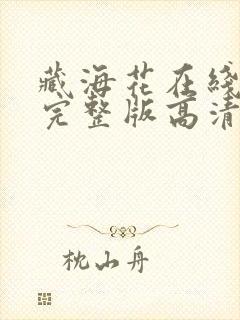 藏海花在线
完整版高清
枕山舟